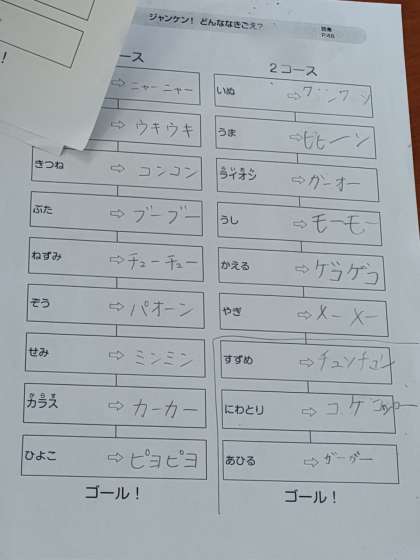 ジャンケン！どんななきごえ？
ース
⇨ニャーニャー
⇨ウキウキ
きつね⇨コンコン
ぶた⇨ブーブー
ねずみ⇨チューチュー
ぞう⇨パオーン
せみ⇨ミンミン
カラス⇨カーカー
ひよこ⇨ピヨピヨ
ゴール！
2コース
いぬ⇨ワンワン
うま⇨ヒヒーン
ライオン⇨ガーオー
うし⇨モーモー
かえる⇨ゲコゲコ
やぎ⇨メーメー
すずめ⇨チュンチュン
にわとり⇨コケコッコー
あひる⇨ガーガー
ゴール！
！